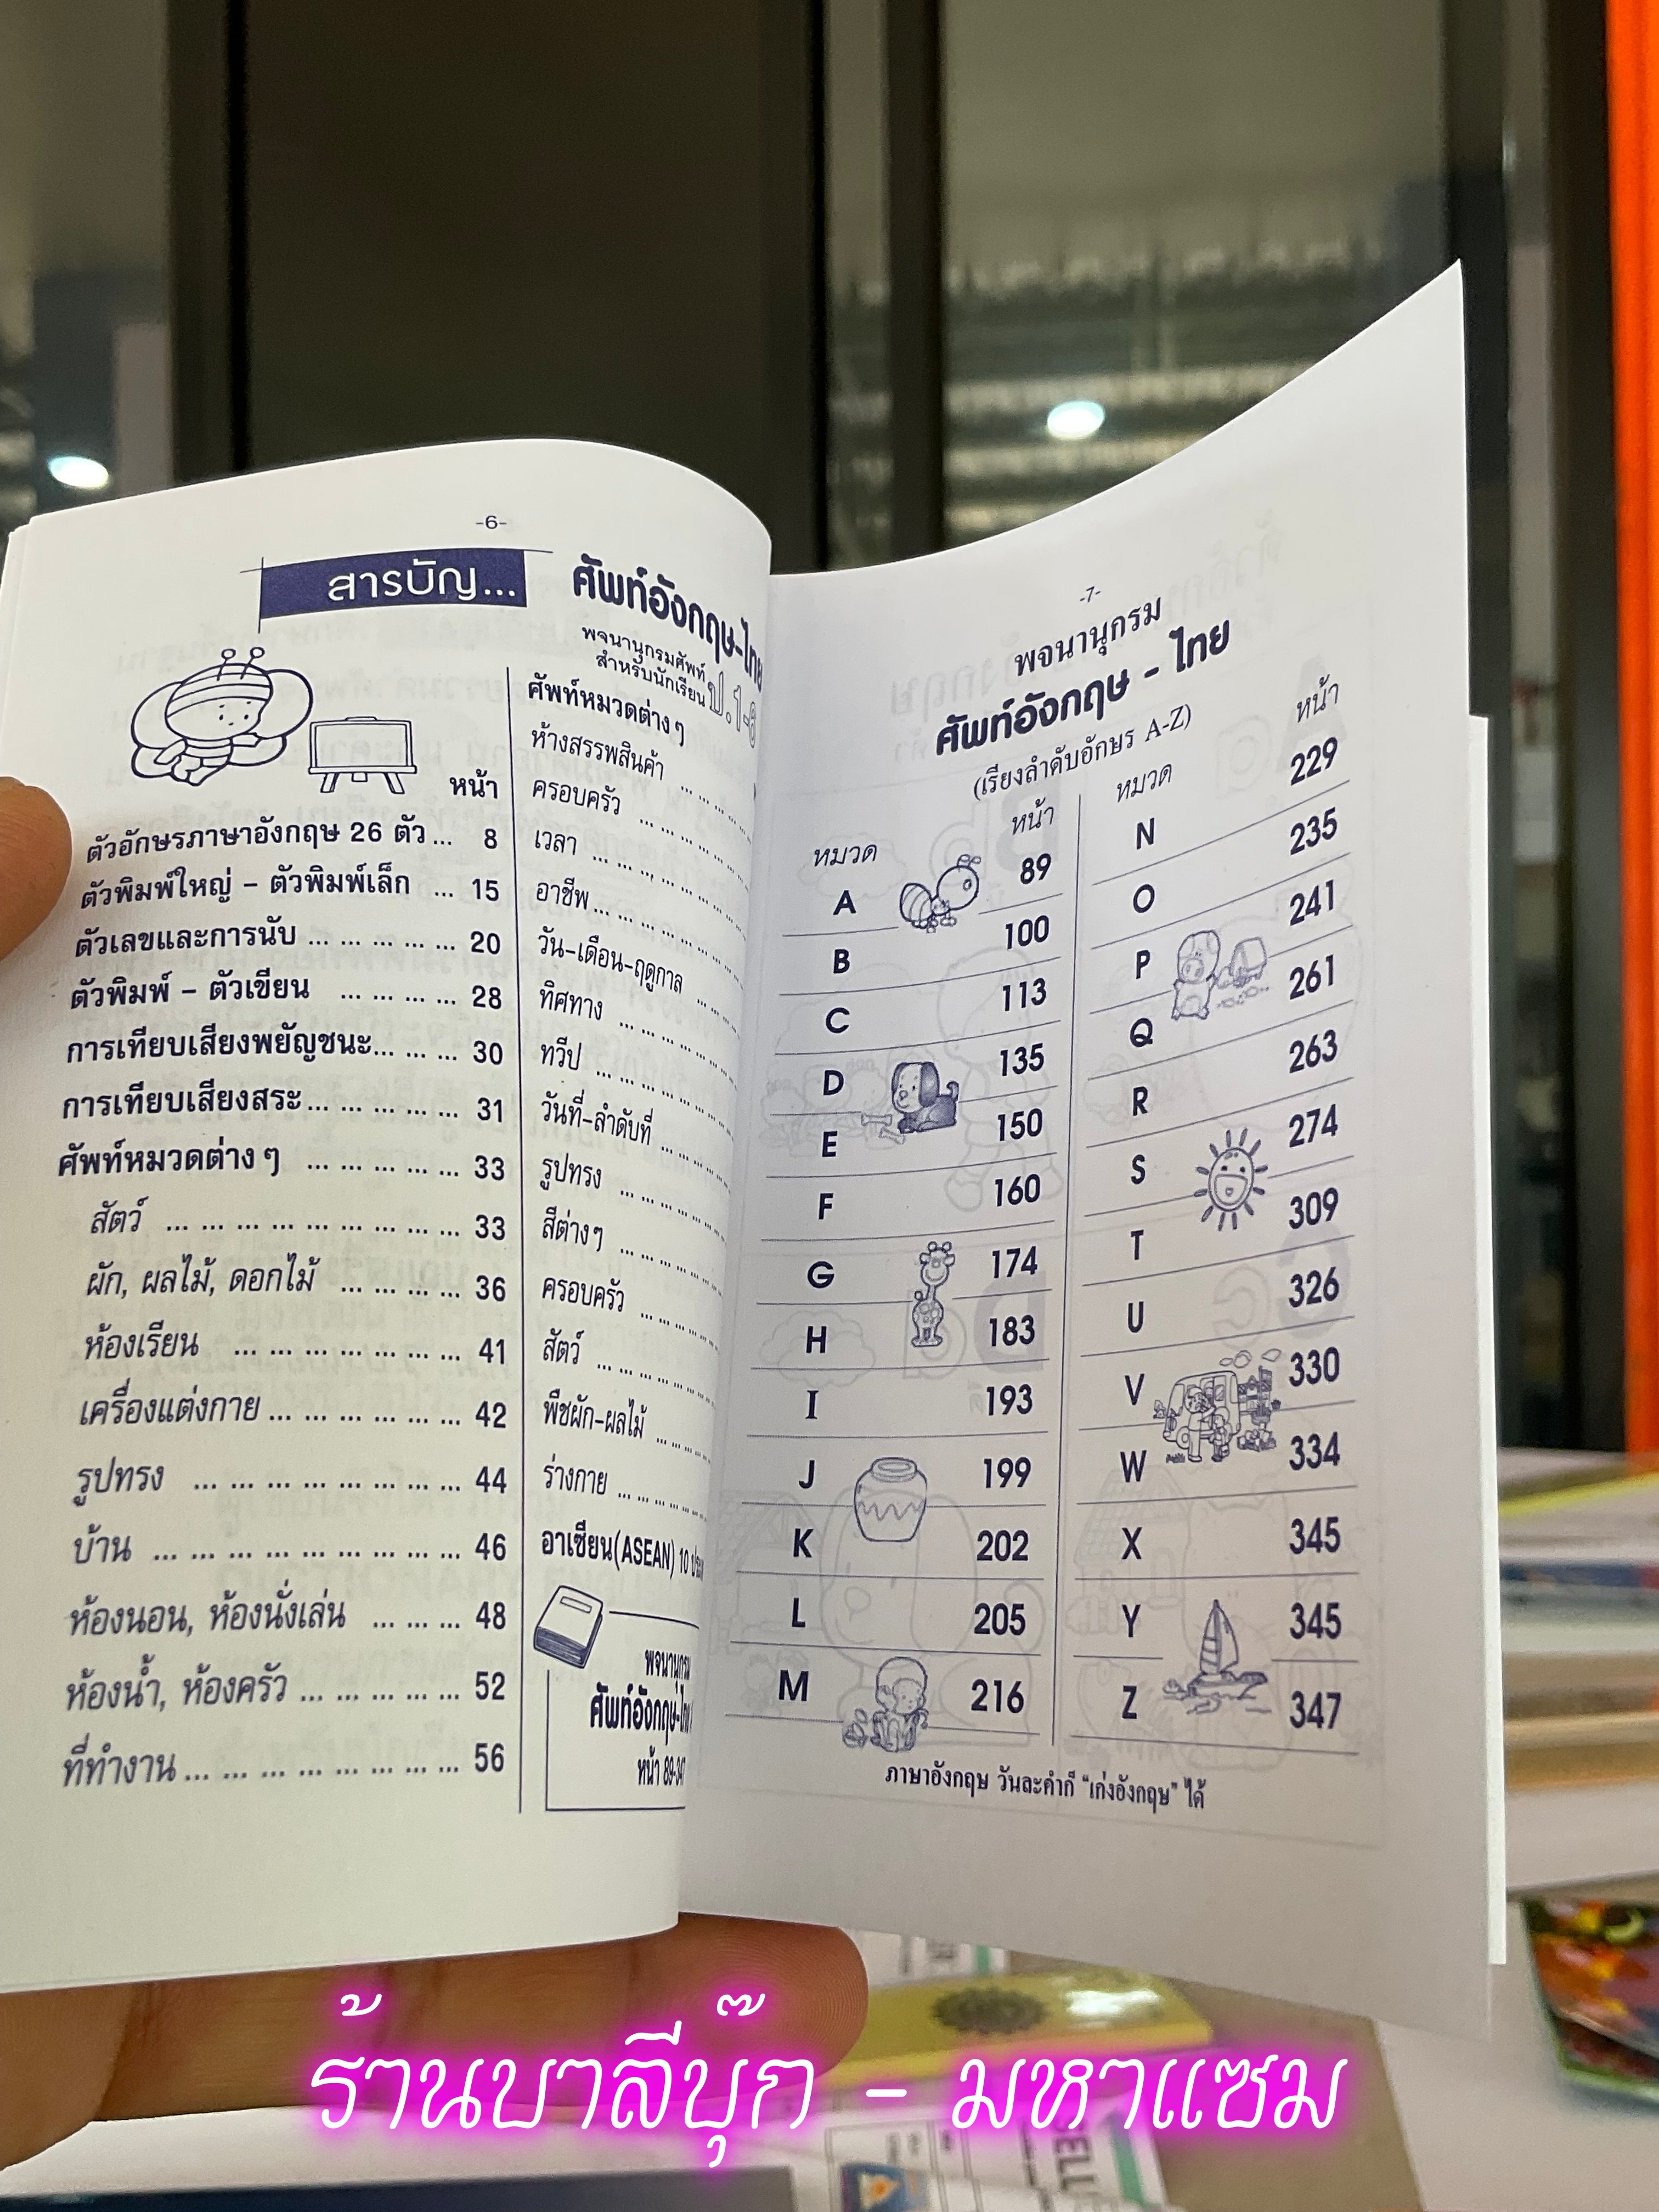 -6-
สารบัญ...
หน้า
ตัวอักษรภาษาอังกฤษ 26 ตัว ... 8
ตัวพิมพ์ใหญ่ – ตัวพิมพ์เล็ก ... 15
ตัวเลขและการนับ ... ... ... ... ... 20
ตัวพิมพ์ – ตัวเขียน ... ... ... ... 28
การเทียบเสียงพยัญชนะ... ... ... 30
การเทียบเสียงสระ... ... ... ... ... 31
ศัพท์หมวดต่าง ๆ ... ... ... ... ... 33
สัตว์ ... ... ... ... ... ... ... ... ... 33
ผัก, ผลไม้, ดอกไม้ ... ... ... ... 36
ห้องเรียน ... ... ... ... ... ... ... 41
เครื่องแต่งกาย ... ... ... ... ... ... 42
รูปทรง ... ... ... ... ... ... ... ... 44
บ้าน ... ... ... ... ... ... ... ... ... 46
ห้องนอน, ห้องนั่งเล่น ... ... ... 48
ห้องน้ำ, ห้องครัว ... ... ... ... ... 52
ที่ทำงาน ... ... ... ... ... ... ... ... 56
ศัพท์อังกฤษ-ไทย
พจนานุกรมศัพท์
สำหรับนักเรียน ป.1-6
ศัพท์หมวดต่าง ๆ
ห้างสรรพสินค้า ... ... ...
ครอบครัว ... ... ... ... ...
เวลา ... ... ... ... ... ...
อาชีพ ... ... ... ... ... ...
วัน-เดือน-ฤดูกาล ... ...
ทิศทาง ... ... ... ... ...
ทวีป ... ... ... ... ... ...
วันที่-ลำดับที่ ... ... ... ...
รูปทรง ... ... ... ... ...
สีต่างๆ ... ... ... ... ...
ครอบครัว ... ... ... ...
สัตว์ ... ... ... ... ... ...
พืชผัก-ผลไม้ ... ... ...
ร่างกาย ... ... ... ... ...
อาเซียน(ASEAN) 10
พจนานุกรม
ศัพท์อังกฤษ-ไทย
หน้า 89-347
-7-
พจนานุกรม
ศัพท์อังกฤษ - ไทย
(เรียงลำดับอักษร A-Z)
หมวด หน้า
A 89
B 100
C 113
D 135
E 150
F 160
G 174
H 183
I 193
J 199
K 202
L 205
M 216
หมวด หน้า
N 229
O 235
P 241
Q 261
R 263
S 274
T 309
U 326
V 330
W 334
X 345
Y 345
Z 347
ภาษาอังกฤษ วันละคำก็ “เก่งอังกฤษ” ได้
ร้านบาลีบุ๊ก - มหาแซม